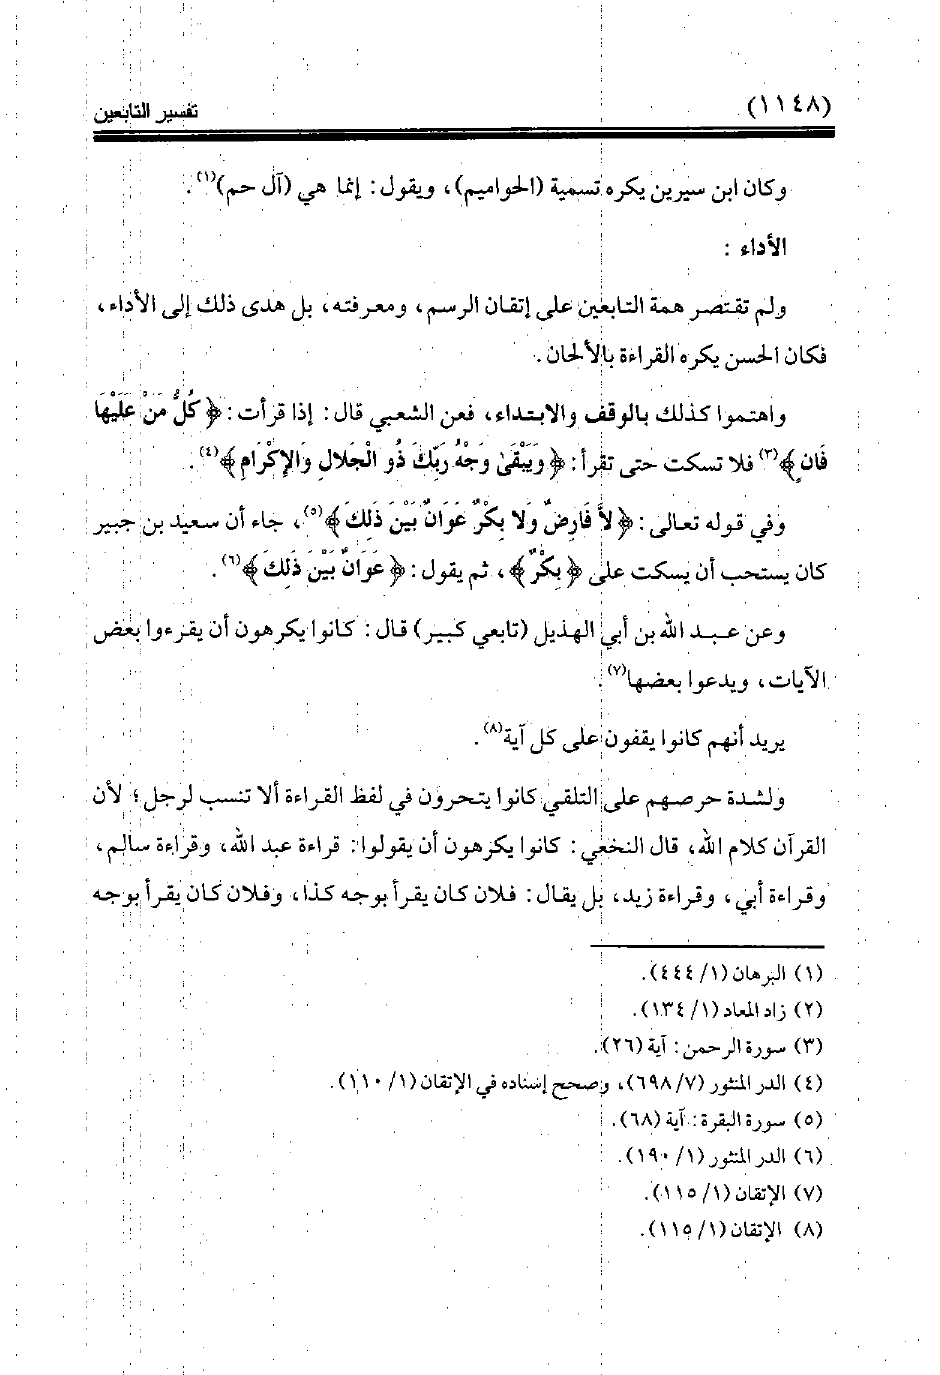 (١١٤٨) تفسير التابعين
وكان ابن سيرين يكره تسمية (الحواميم)، ويقول: إنما هي (آل حم)(١).
الأداء :
ولم تقتصر همة التابعين على إتقان الرسم، ومعرفته، بل هدى ذلك إلى الأداء،
فكان الحسن يكره القراءة بالألحان.
واهتموا كذلك بالوقف والابتداء، فعن الشعبي قال: إذا قرأت: ﴿كُلُّ مَنْ عَلَيْهَا
فَانٍ﴾(٣) فلا تسكت حتى تقرأ: ﴿وَيَبْقَىٰ وَجْهُ رَبِّكَ ذُو الْجَلَالِ وَالإِكْرَامِ﴾(٤).
وفي قوله تعالى: ﴿لاَّ فَارِضٌ وَلا بِكْرٌ عَوَانٌ بَيْنَ ذَلِكَ﴾(٥)، جاء أن سعيد بن جبير
كان يستحب أن يسكت على ﴿بِكْرٌ﴾، ثم يقول: ﴿عَوَانٌ بَيْنَ ذَلِكَ﴾(٦).
وعن عبد الله بن أبي الهذيل (تابعي كبير) قال: كانوا يكرهون أن يقرءوا بعض
الآيات، ويدعوا بعضها(٧).
يريد أنهم كانوا يقفون على كل آية(٨).
ولشدة حرصهم على التلقي كانوا يتحرون في لفظ القراءة ألا تنسب لرجل؛ لأن
القرآن كلام الله، قال النخعي: كانوا يكرهون أن يقولوا: قراءة عبد الله، وقراءة سالم،
وقراءة أبي، وقراءة زيد، بل يقال: فلان كان يقرأ بوجه كذا، وفلان كان يقرأ بوجه
(١) البرهان (١/ ٤٤٤).
(٢) زاد المعاد (١/ ١٣٤).
(٣) سورة الرحمن: آية (٢٦).
(٤) الدر المنثور (٧/ ٦٩٨)، وصحح إسناده في الإتقان (١/ ١١٠).
(٥) سورة البقرة: آية (٦٨).
(٦) الدر المنثور (١/ ١٩٠).
(٧) الإتقان (١/ ١١٥).
(٨) الإتقان (١/ ١١٥).